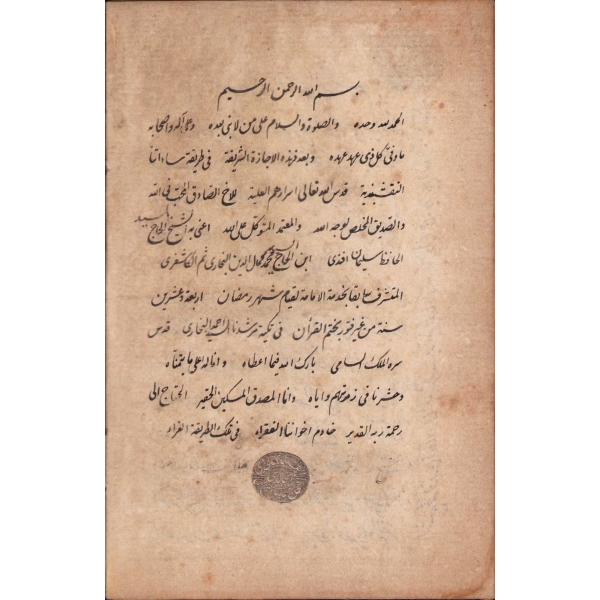 بسم الله الرحمن الرحيم
الحمد لله وحده والصلوة والسلام على من لا نبي بعده وعلى آله واصحابه
ما وفى كل ذى عهد عهده وبعد فهذه الاجازة الشريفة فى طريقة ساداتنا
النقشبندية قدس الله تعالى اسرارهم العلية للاخ الصادق المحب فى الله
والصديق المخلص لوجه الله والمعتمد المتوكل على الله اعنى به الشيخ الحاج السيد
الحافظ سليمان افندى ابن الحاج السيد محمد كمال الدين البخارى ثم الكاشغرى
المتشرف سابقا بخدمة الامامة لقيام شهر رمضان اربعة وعشرين
سنة من غير فتور بختم القرآن فى تكية مرشدنا السيد احمد البخارى قدس
سره الملك السامى بارك الله فيما اعطاه واناله على ما يتمناه
وحشرنا فى زمرتهم واياه وانا المصدق المسكين الحقير المحتاج الى
رحمة ربه القدير خادم اخواننا الفقراء فى تلك الطريقة الغراء